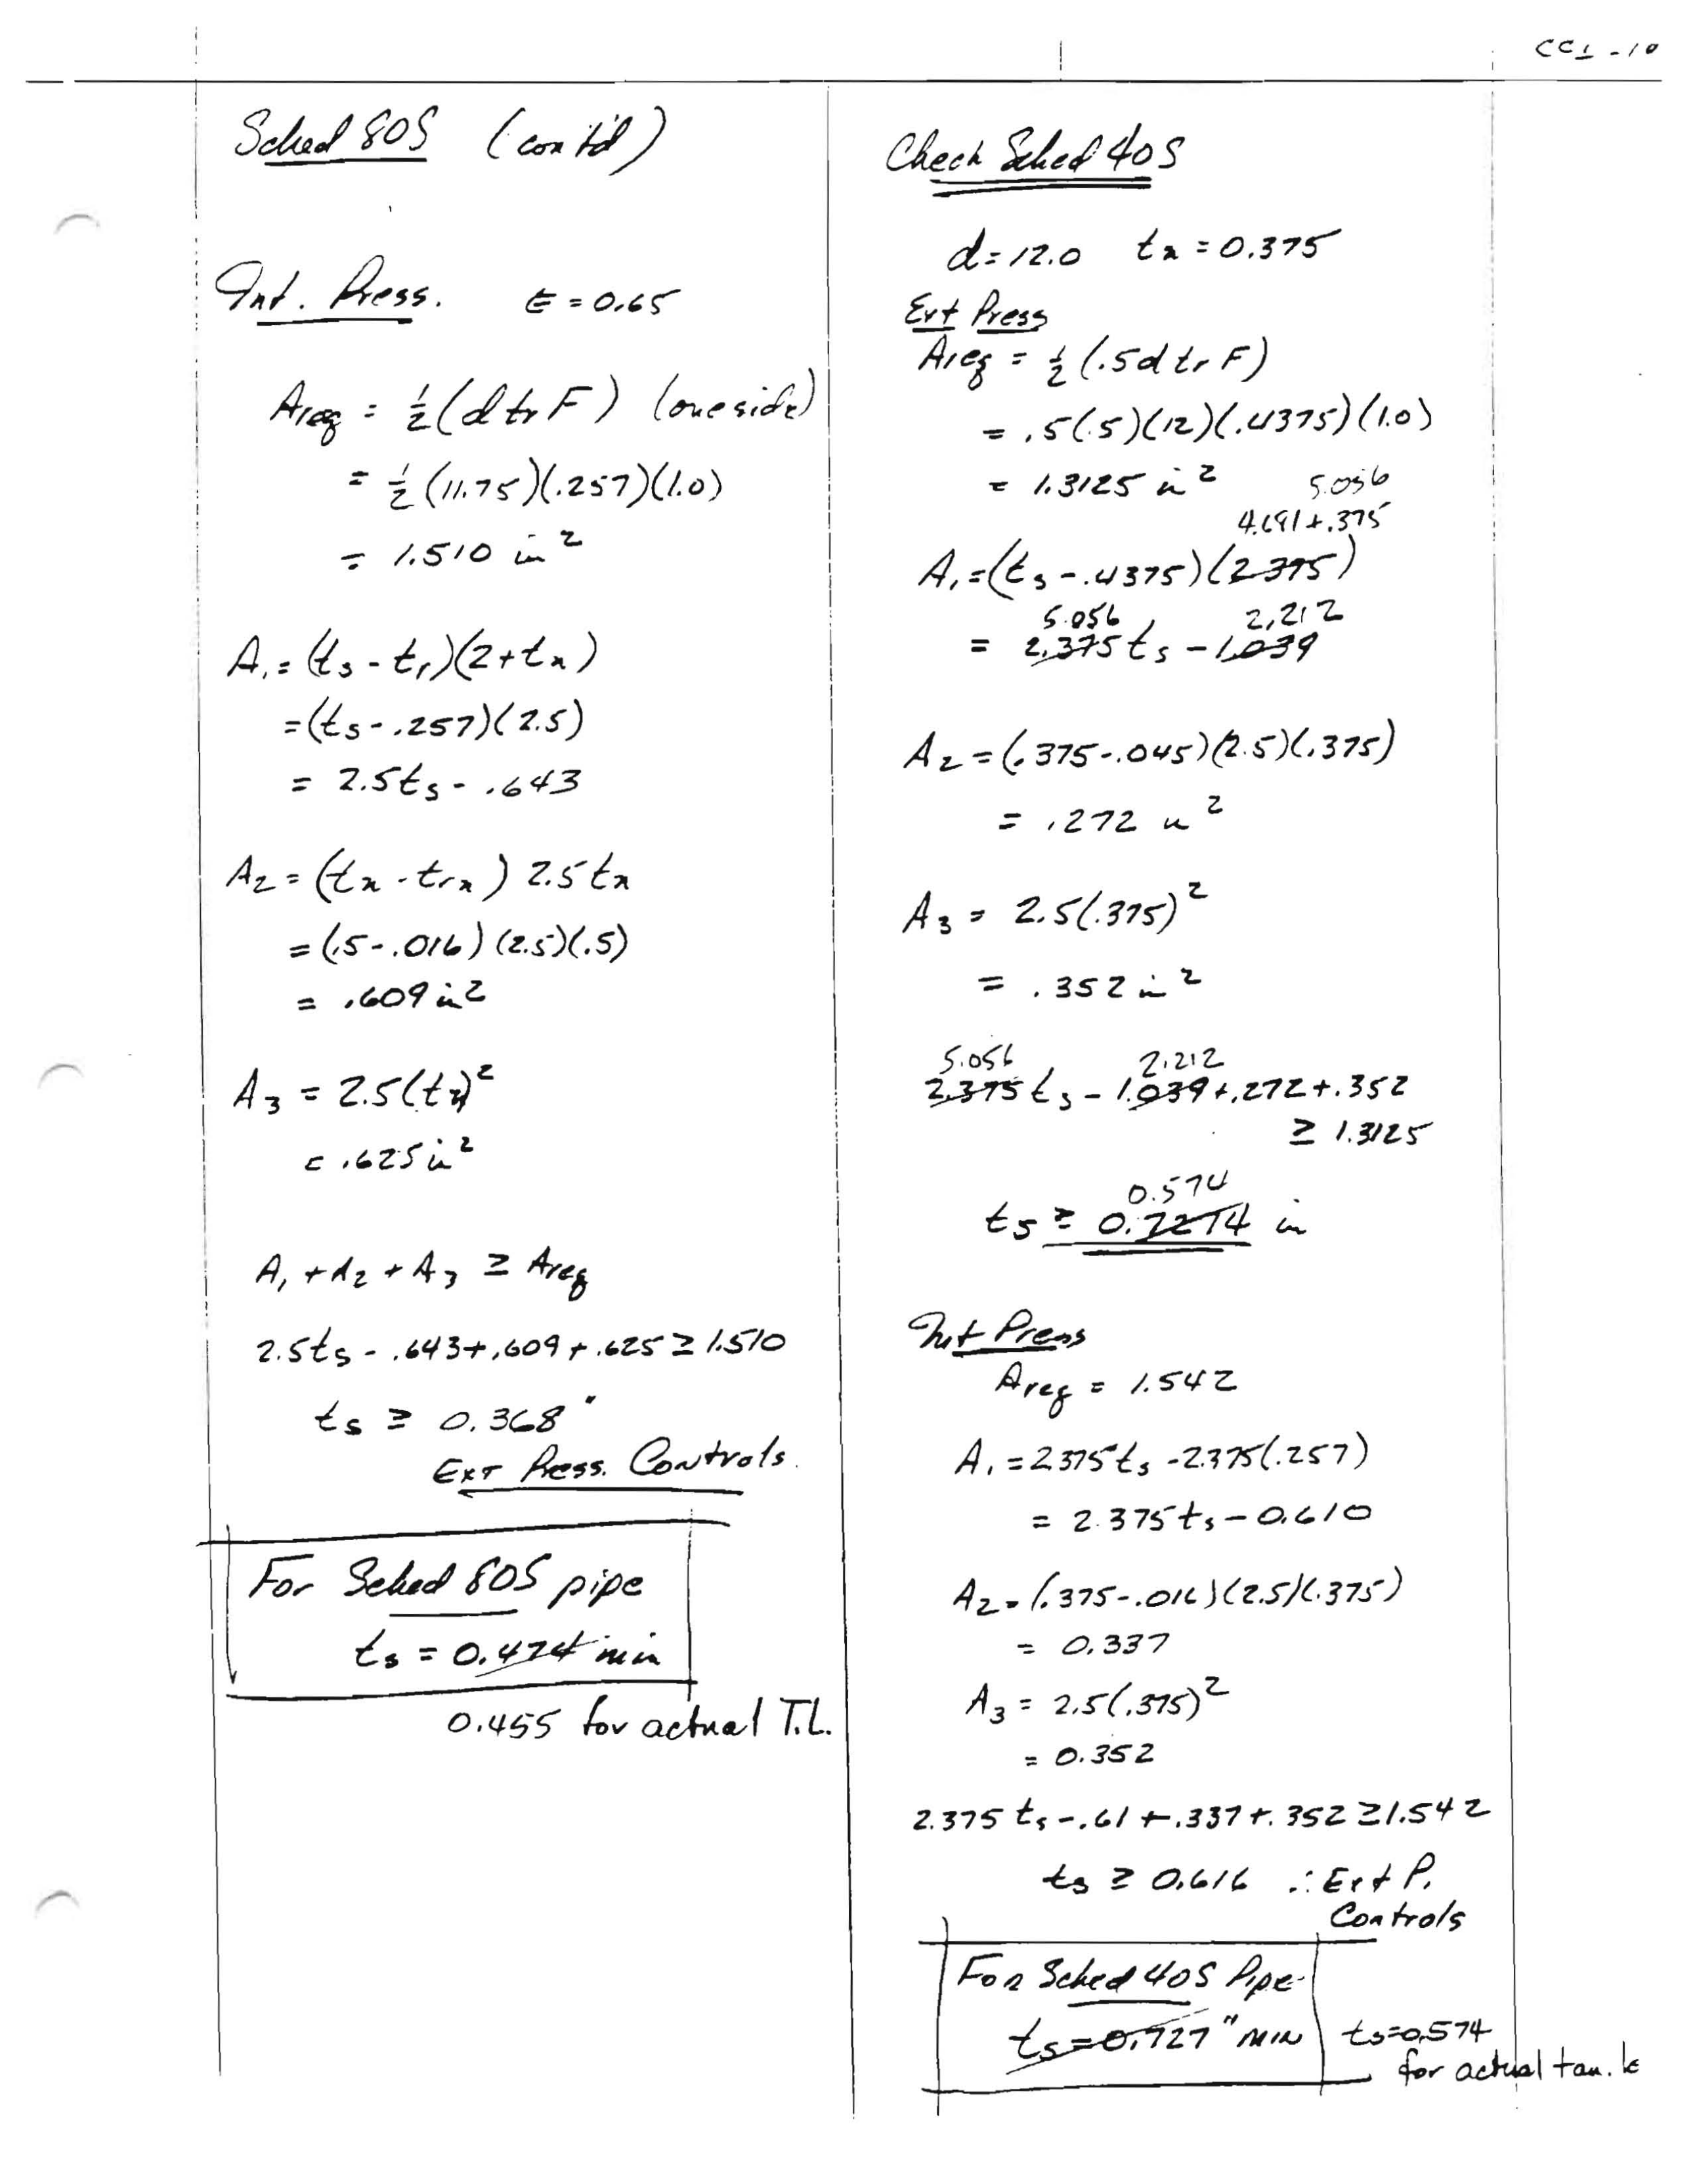 CC1-10
Sched 80S (cont'd)
Int. Press. E = 0.65
Areq = ½(d tr F) (one side)
= ½(11.75)(.257)(1.0)
= 1.510 in²
A₁ = (ts - tr)(2+tn)
= (ts - .257)(2.5)
= 2.5ts - .643
A₂ = (tn - trn) 2.5tn
= (.5-.016)(2.5)(.5)
= .609 in²
A₃ = 2.5(tn)²
= .625 in²
A₁ + A₂ + A₃ ≥ Areq
2.5ts - .643+.609+.625 ≥ 1.510
ts ≥ 0.368"
Ext Press. Controls.
For Sched 80S pipe
ts = 0.474 min
0.455 for actual T.L.
Check Sched 40S
d = 12.0 tn = 0.375
Ext Press
Areq = ½(.5d tr F)
= .5(.5)(12)(.4375)(1.0)
= 1.3125 in²
5.056
4.691+.375
A₁ = (ts - .4375)(2.375)
5.056 2.212
= 2.375ts - 1.039
A₂ = (.375-.045)(2.5)(.375)
= .272 in²
A₃ = 2.5(.375)²
= .352 in²
5.056 2.212
2.375ts - 1.039+.272+.352
≥ 1.3125
0.574
ts ≥ 0.7274 in
Int Press
Areq = 1.542
A₁ = 2.375ts - 2.375(.257)
= 2.375ts - 0.610
A₂ = (.375-.016)(2.5)(.375)
= 0.337
A₃ = 2.5(.375)²
= 0.352
2.375ts - .61+.337+.352 ≥ 1.542
ts ≥ 0.616 ∴ Ext P.
Controls
For Sched 40S Pipe
ts = 0.727" MIN
ts = 0.574
for actual tan. le